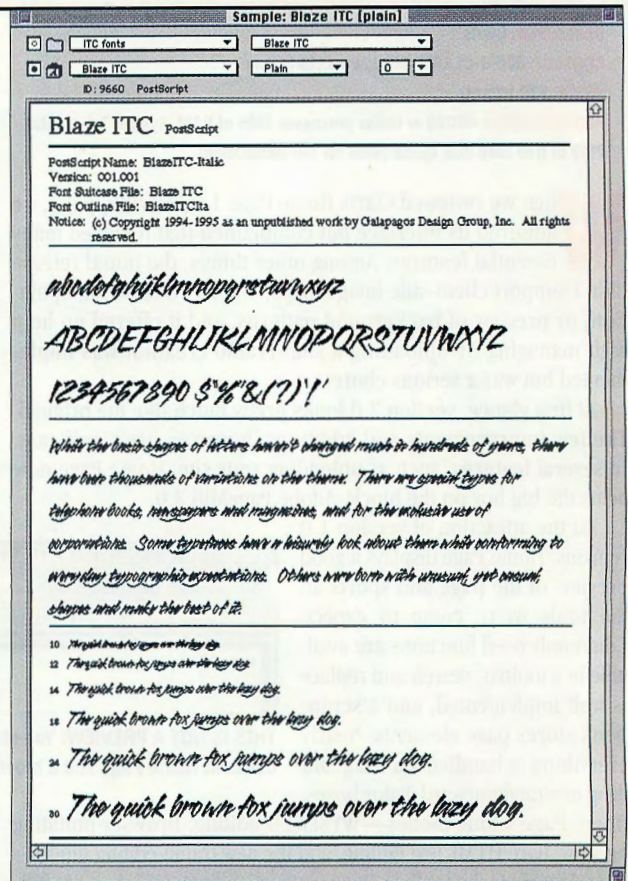 Sample: Blaze ITC [plain]
ITC fonts Blaze ITC
Blaze ITC Plain 0
ID: 9660 PostScript
Blaze ITC PostScript
PostScript Name: BlazeITC-Italic
Version: 001.001
Font Suitcase File: Blaze ITC
Font Outline File: BlazeITCIta
Notice: (c) Copyright 1994-1995 as an unpublished work by Galapagos Design Group, Inc. All rights
reserved.
abcdefghijklmnopqrstuvwxyz
ABCDEFGHIJKLMNOPQRSTUVWXYZ
1234567890 $%&(?)!
While the basic shapes of letters haven't changed much in hundreds of years, there
have been thousands of variations on the theme. There are special types for
telephone books, newspapers and magazines, and for the exclusive use of
corporations. Some typefaces have a leisurely look about them while conforming to
everyday typographic expectations. Others were born with unusual, yet casual,
shapes and make the best of it.
10 The quick brown fox jumps over the lazy dog.
12 The quick brown fox jumps over the lazy dog.
14 The quick brown fox jumps over the lazy dog.
18 The quick brown fox jumps over the lazy dog.
24 The quick brown fox jumps over the lazy dog.
30 The quick brown fox jumps over the lazy dog.